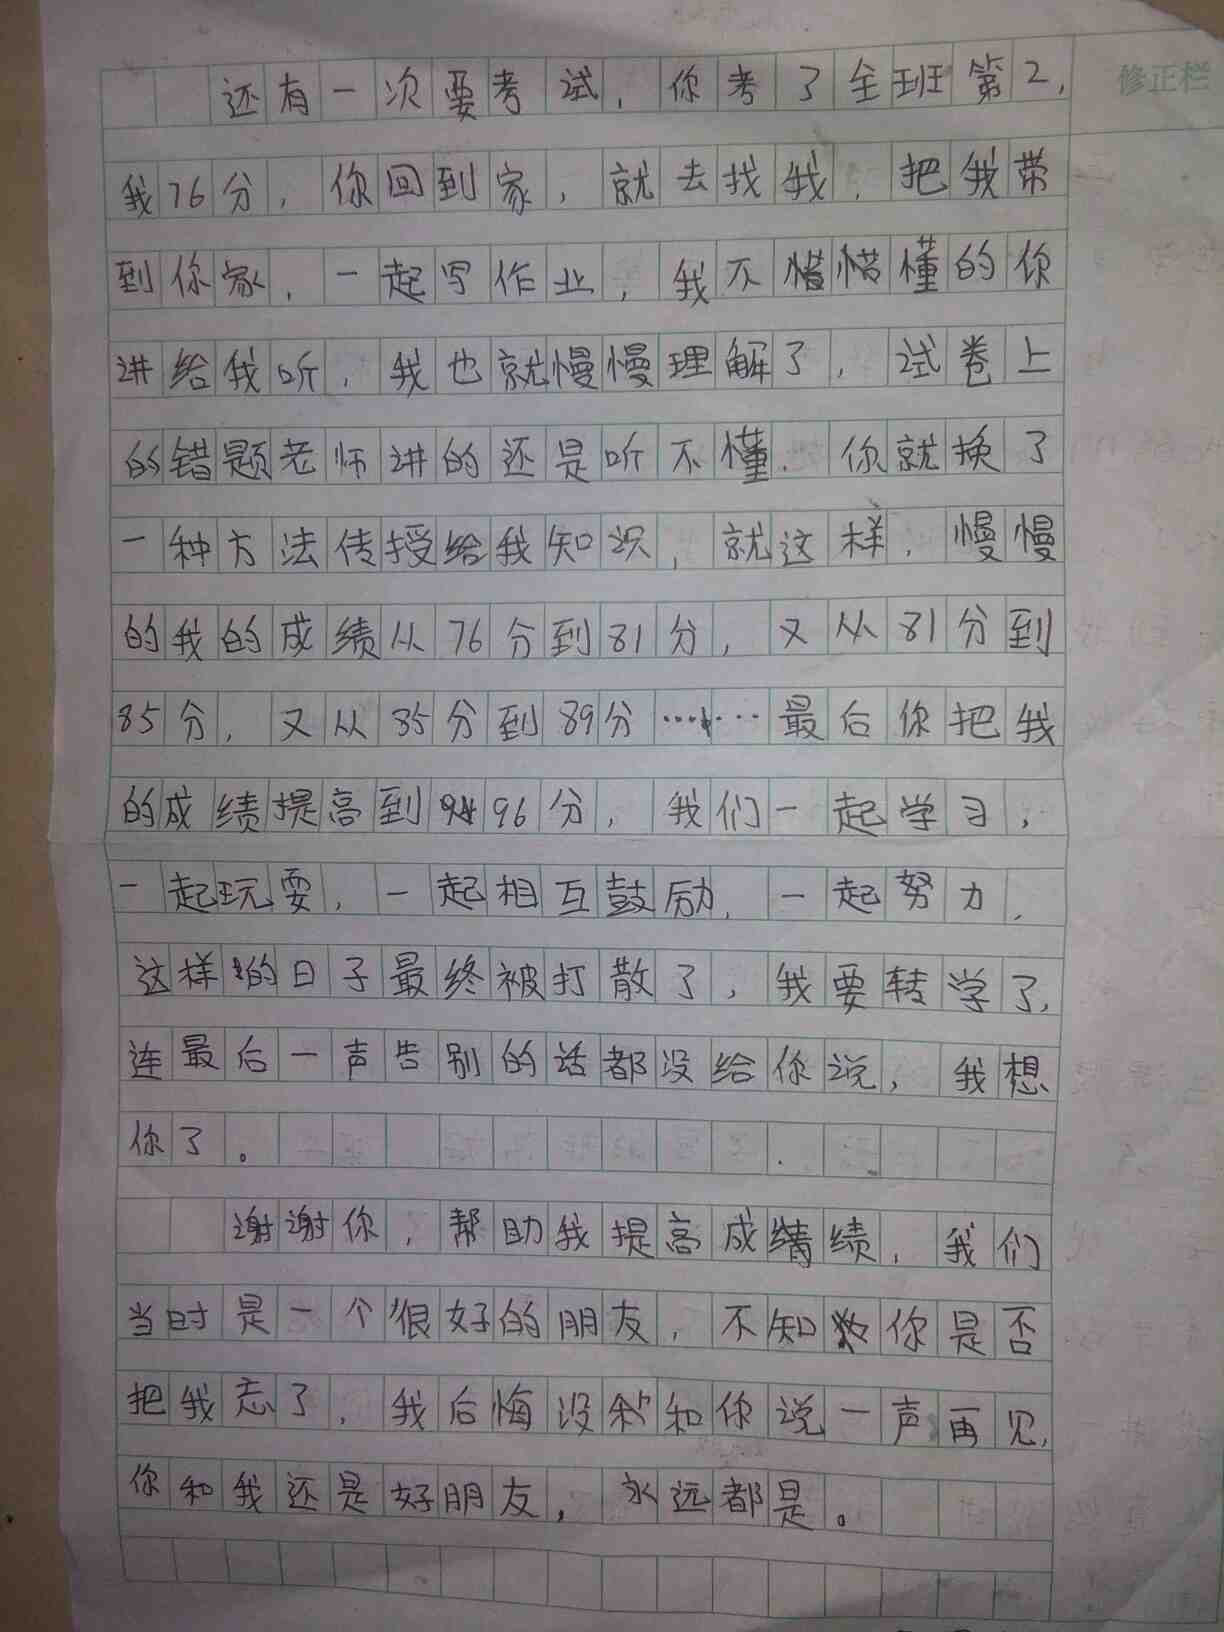 修正栏
还有一次要考试，你考了全班第2，
我76分，你回到家，就去找我，把我带
到你家，一起写作业，我不惜惜懂的你
讲给我听，我也就慢慢理解了，试卷上
的错题老师讲的还是听不懂．你就换了
一种方法传授给我知识，就这样，慢慢
的我的成绩从76分到81分，又从81分到
85分，又从85分到89分……最后你把我
的成绩提高到96分，我们一起学习，
一起玩耍，一起相互鼓励，一起努力，
这样的日子最终被打散了，我要转学了，
连最后一声告别的话都没给你说，我想
你了。
谢谢你，帮助我提高成绩，我们
当时是一个很好的朋友，不知你是否
把我忘了，我后悔没和你说一声再见，
你和我还是好朋友，永远都是。